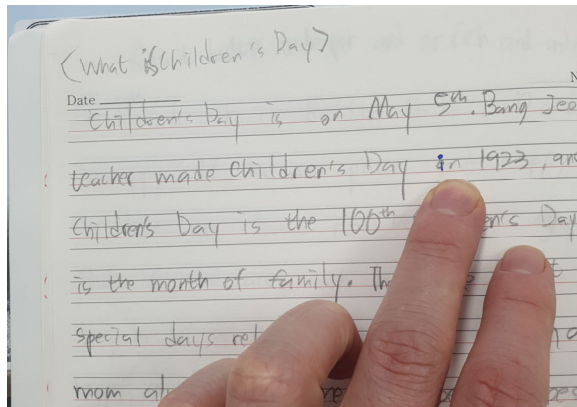 <What is Children's Day>
Date
Children's Day is on May 5th. Bang Jeo
teacher made Children's Day in 1923, an
Children's Day is the 100th Day
is the month of family.
special days
mom